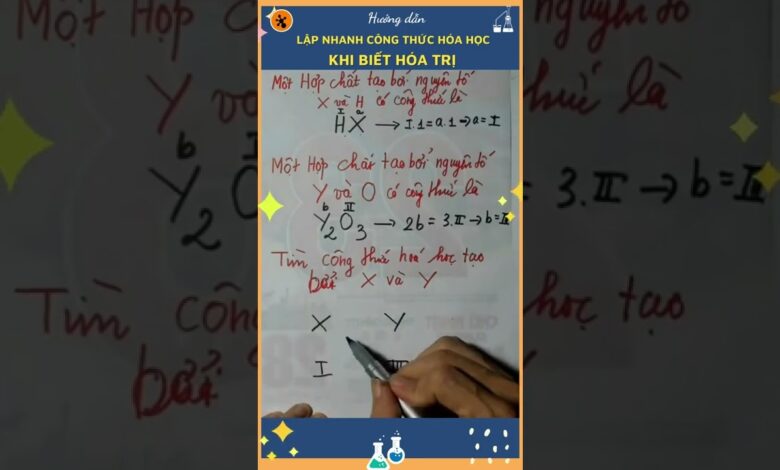 Hướng dẫn
LẬP NHANH CÔNG THỨC HÓA HỌC
KHI BIẾT HÓA TRỊ
Một Hợp chất tạo bởi nguyên tố
X và H có công thức là
I a
HX → I.1 = a.1 → a = I
Một Hợp chất tạo bởi nguyên tố
Y và O có công thức là
b II
Y₂O₃ → 2b = 3.II → b = III
Tìm công thức hoá học tạo
bởi X và Y
X Y
I III